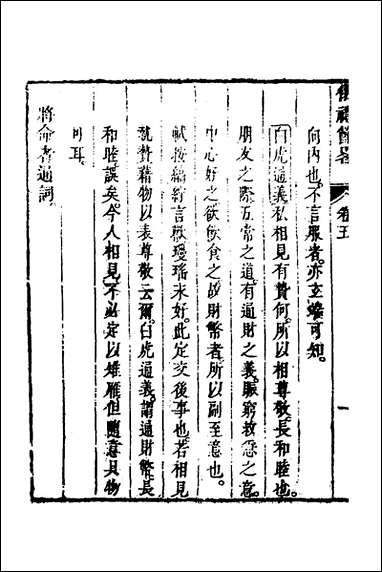 儀禮節畧 卷五 一
向內也。不言服者。亦玄端可知。
白虎通義私相見有贄何。所以相尊敬。長和睦也。
朋友之際五常之道。有通財之義。賑窮救急之意。
中心好之欲飲食之。故財幣者。所以副至意也。
軾按縞紵言歡瓊瑤永好。此定交後事也。若相見
就贄藉物以表尊敬云爾。白虎通義。謂通財幣長
和睦誤矣。今人相見。不必定以雉雁但隨意具物
可耳。
將命者通詞。